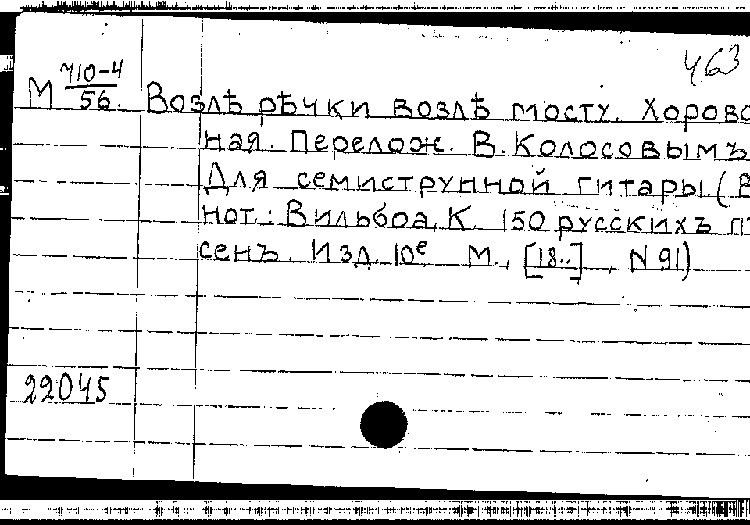 463
М 710-4
56. Возлѣ рѣчки возлѣ мосту. Хорово
ная. Перелож. В. Колосовымъ
Для семиструнной гитары (В
нот.: Вильбоа, К. 150 русскихъ пѣ
сенъ. Изд. 10е М., [18..], N 91)
22045